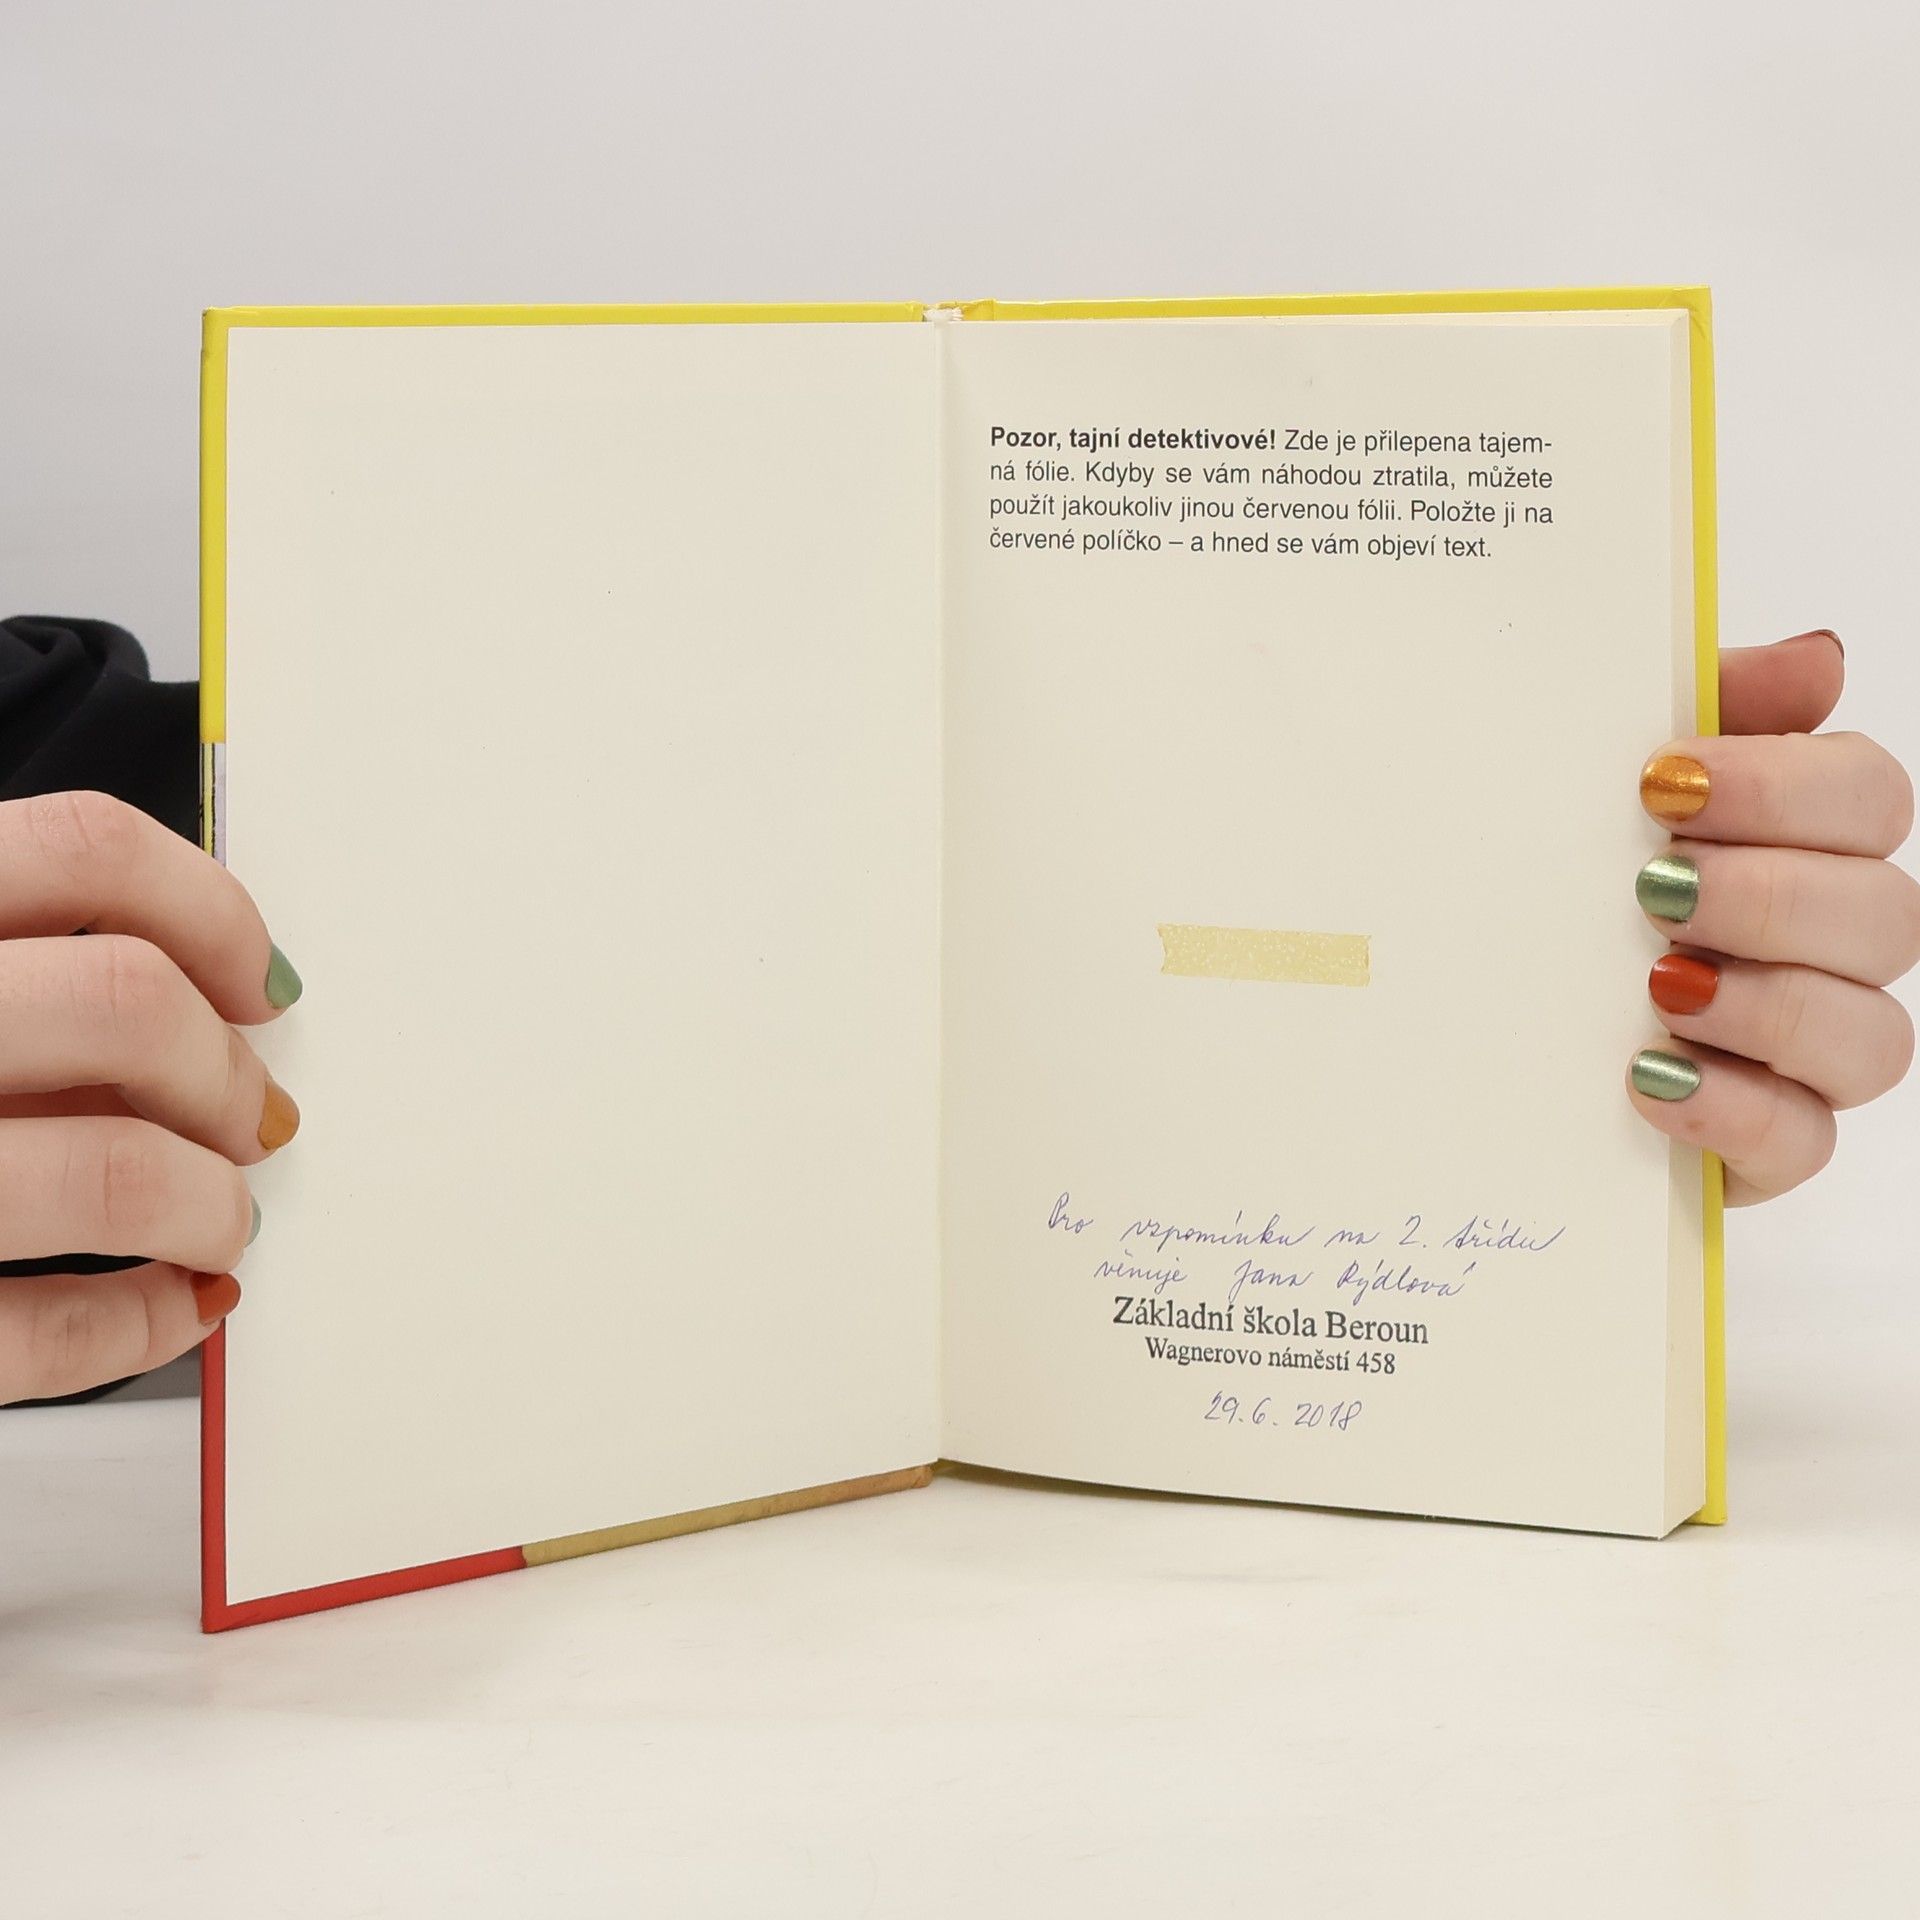 Pozor, tajní detektivové! Zde je přilepena tajem-
ná fólie. Kdyby se vám náhodou ztratila, můžete
použít jakoukoliv jinou červenou fólii. Položte ji na
červené políčko – a hned se vám objeví text.
Pro vzpomínku na 2. třídu
věnuje Jana Rýdlová
Základní škola Beroun
Wagnerovo náměstí 458
29. 6. 2018